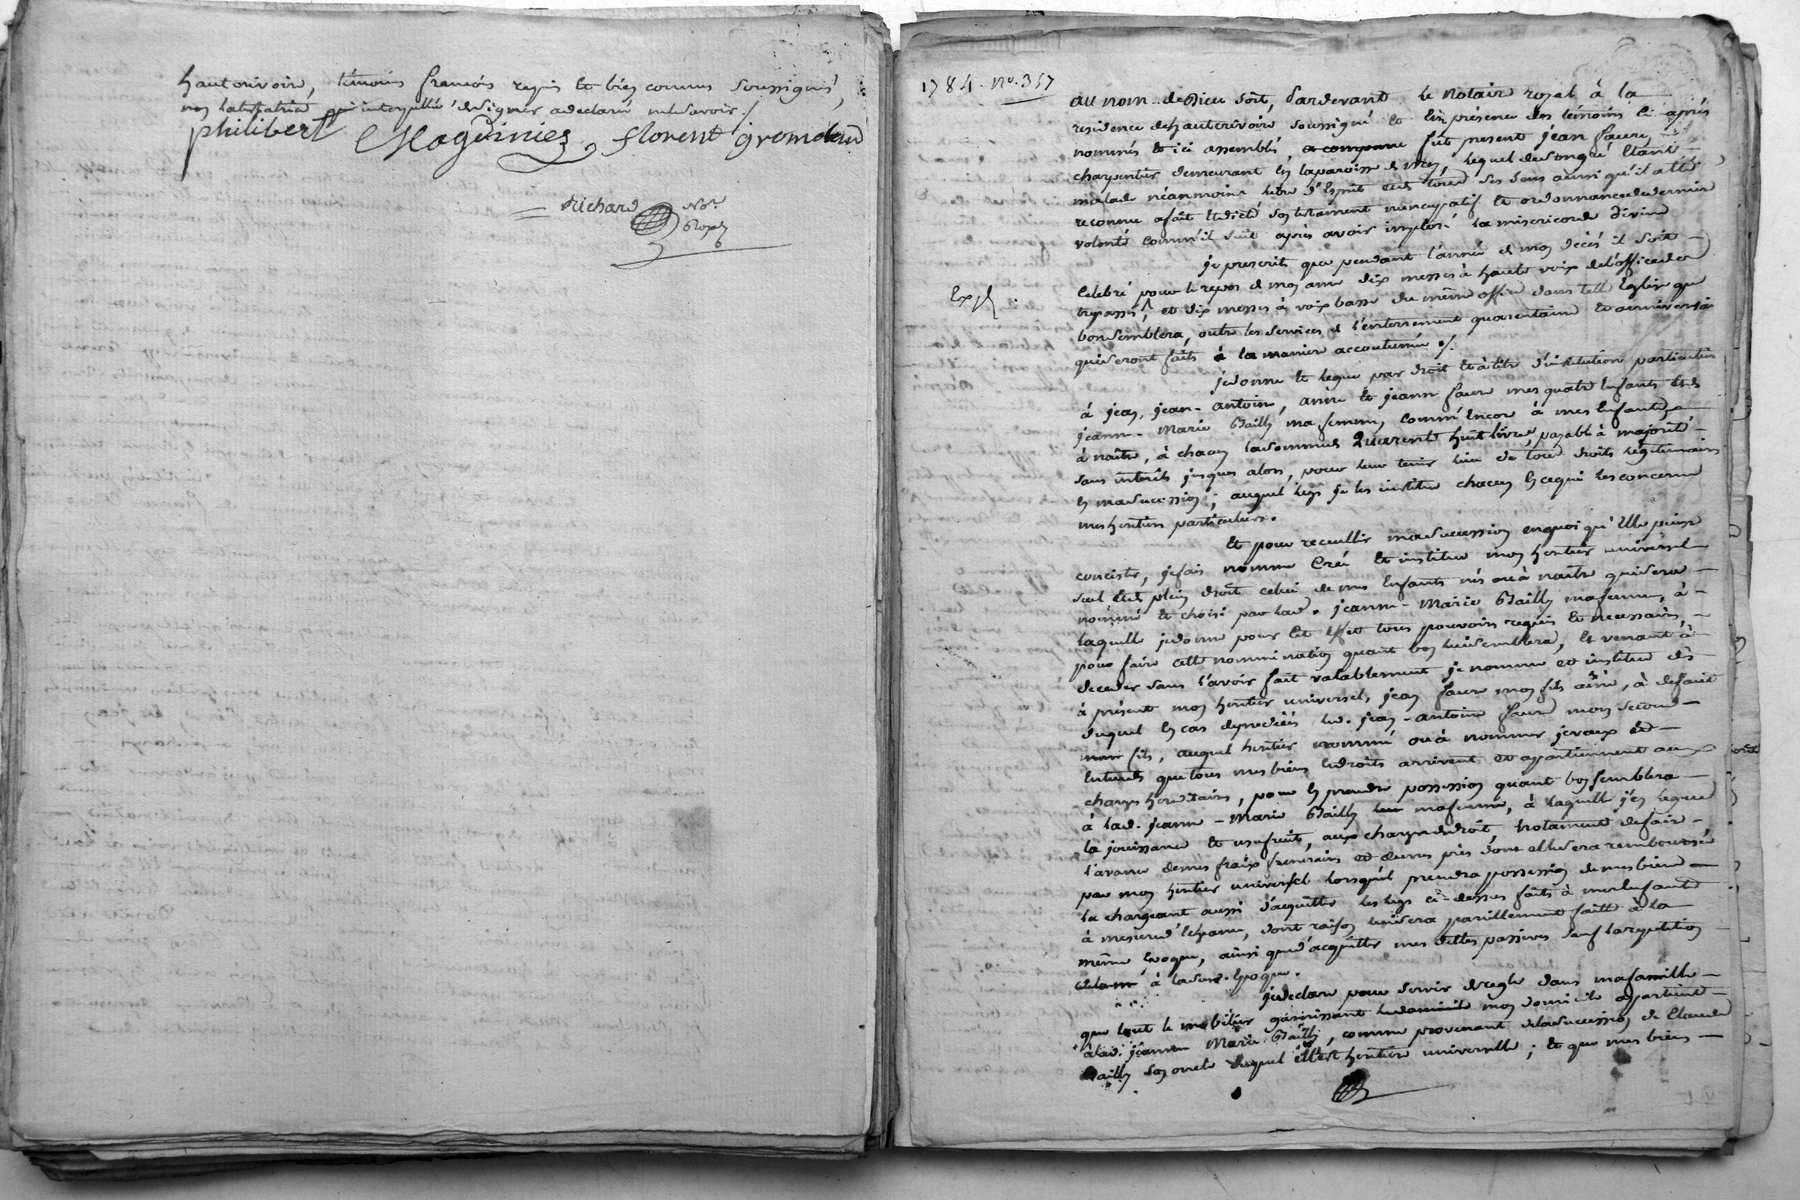 hauterivoire, témoins francois requis et bien connus soussignés,
non la testatrice qui interpellée de signer a declaré ne le savoir ./.
philibert Magdinier florent gromolard
Richard Nore
Royal
1784. No. 357
au nom de Dieu soit, Pardevant le notaire royal à la
residence de hauterivoire soussigné et en présence des témoins ci après
nommés et ici assemblés, a comparu fut present jean faure
charpentier demeurant en la paroisse de mey, lequel de son gré étant
malade néanmoins libre d'Esprit et de tous ses sens ainsi qu'il a été
reconnu a fait et dicté son testament nuncupatif et ordonnance de derniere
volonté comm'il suit après avoir imploré la misericorde divine
je prescrits que pendant l'année de mon décès il soit
Expé.
celebré pour le repos de mon ame dix messes à haute voix de l'office des
trépassés, et dix messes à voix basse du même office dans telle Eglise que
bon semblera, outre les services de l'enterrement quarantaine et anniversaire
qui seront faits à la maniere accoutumée ./.
je donne et legue par droit et à titre d'institution particuliere
à jean, jean-antoine, anne et jeanne faure mes quatre Enfants et de
jeanne-Marie Bailly ma femme, comm'Encor à mes Enfants
à naître, à chacun la somme de Quarente huit livres, payable à majorité
sans intérêts jusques alors, pour leur tenir lieu de tous droits légitimaires
en ma succession; auquel legs je les institue chacun en ce qui les concerne
mes heritiers particuliers.
Et pour recueillir ma succession en quoi qu'Elle puisse
conciste, je fais nomme Créé et institue mon heritier universel
seul et de plein droit celui de mes Enfants nés ou à naître qui sera
nommé et choisi par lad. jeanne-Marie Bailly ma femme, à
laquelle je donne pour cet effet tous pouvoirs requis et necessaires,
pour faire cette nommination quant bon lui semblera, Et venant à
deceder sans l'avoir fait valablement je nomme et institue dès
à présent mon heritier universel, jean faure mon fils ainé, à defaut
duquel en cas de predécès led. jean-antoine faure mon second
fils, auquel heritier nommé ou à nommer je veux et
Entends que tous mes biens et droits arrivent et apartiennent aux
charges hereditaires, pour en prendre possession quant bon semblera
à lad. jeanne-Marie Bailly ma femme, à laquelle j'en legue
la jouissance et usufruit, aux charges de droit, notament de faire
l'avance de mes fraix funeraires et œuvres pies dont elle sera remboursée
par mon heritier universel lorsqu'il prendra possession de mes biens
la chargeant aussi d'acquitter les legs ci-dessus faits à mes Enfants
à mesure d'Echeance, dont raison lui sera pareillement faitte à la
même Epoque, ainsi que d'acquitter mes dettes passives sauf la repetition
à lad. Epoque.
je declare pour servir de regle dans ma famille
que tout le mobilier garnissant mon domicile apartient
à lad. jeanne Marie Bailly, comme provenant de la succession de Claude
Bailly son oncle duquel Elle est heritiere universelle; Et que mes biens